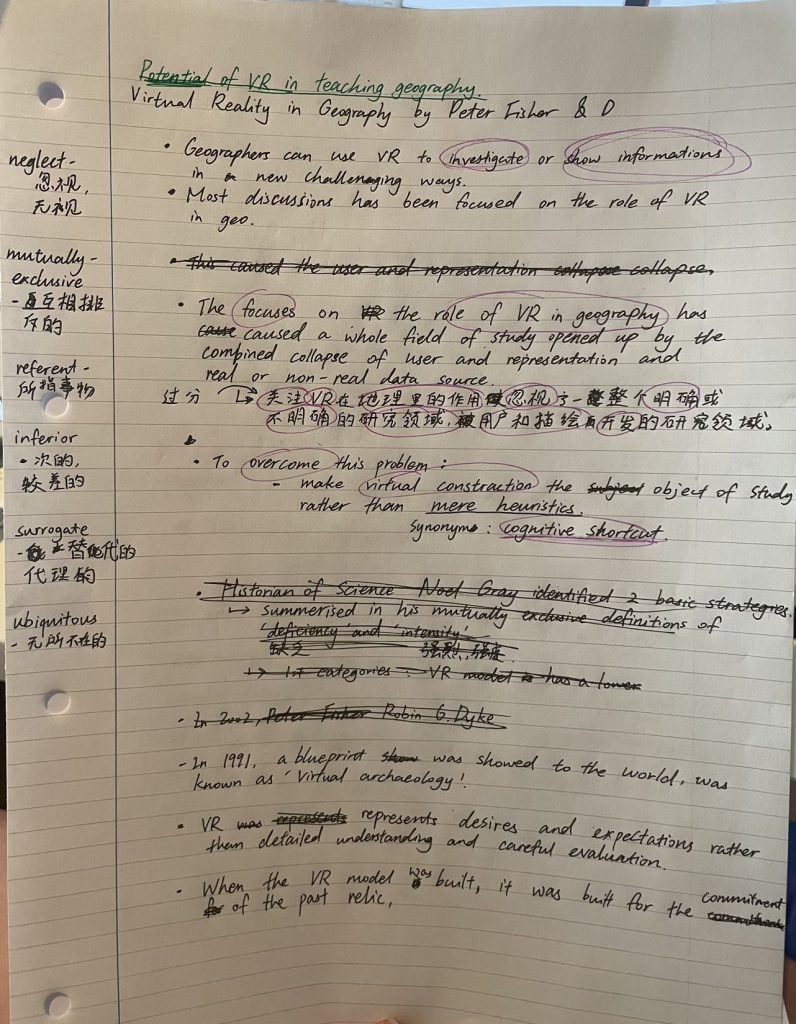 Potential of VR in teaching geography.
Virtual Reality in Geography by Peter Fisher & D
• Geographers can use VR to investigate or show informations
in a new challenging ways.
• Most discussions has been focused on the role of VR
in geo.
• This caused the user and representation collapse collapse.
• The focuses on VR the role of VR in geography has
cause caused a whole field of study opened up by the
combined collapse of user and representation and
real or non-real data source.
过分 ↳ 关注VR在地理里的作用 忽视了一整个明确或
不明确的研究领域, 被用户和描绘 开发的研究领域。
• To overcome this problem :
- make virtual constraction the subject object of study
rather than mere heuristics.
Synonym : cognitive shortcut.
• Historian of Science Noel Gray identified 2 basic strategries.
↳ summerised in his mutually exclusive definitions of
'deficiency' and 'intensity'
缺乏 强烈, 强度.
↳ 1st categories : VR model is has a lower
- In 2002, Peter Fisher Robin G. Dyke
- In 1991, a blueprint show was showed to the world, was
known as 'Virtual archaeology'.
• VR was represents represents desires and expectations rather
than detailed understanding and careful evaluation.
• When the VR model was built, it was built for the commitment
for of the past relic,
neglect -
忽视,
无视
mutually -
exclusive
- 互相排
斥的
referent -
所指事物
inferior
• 次的,
较差的
surrogate
- 替代的
代理的
ubiquitous
- 无所不在的